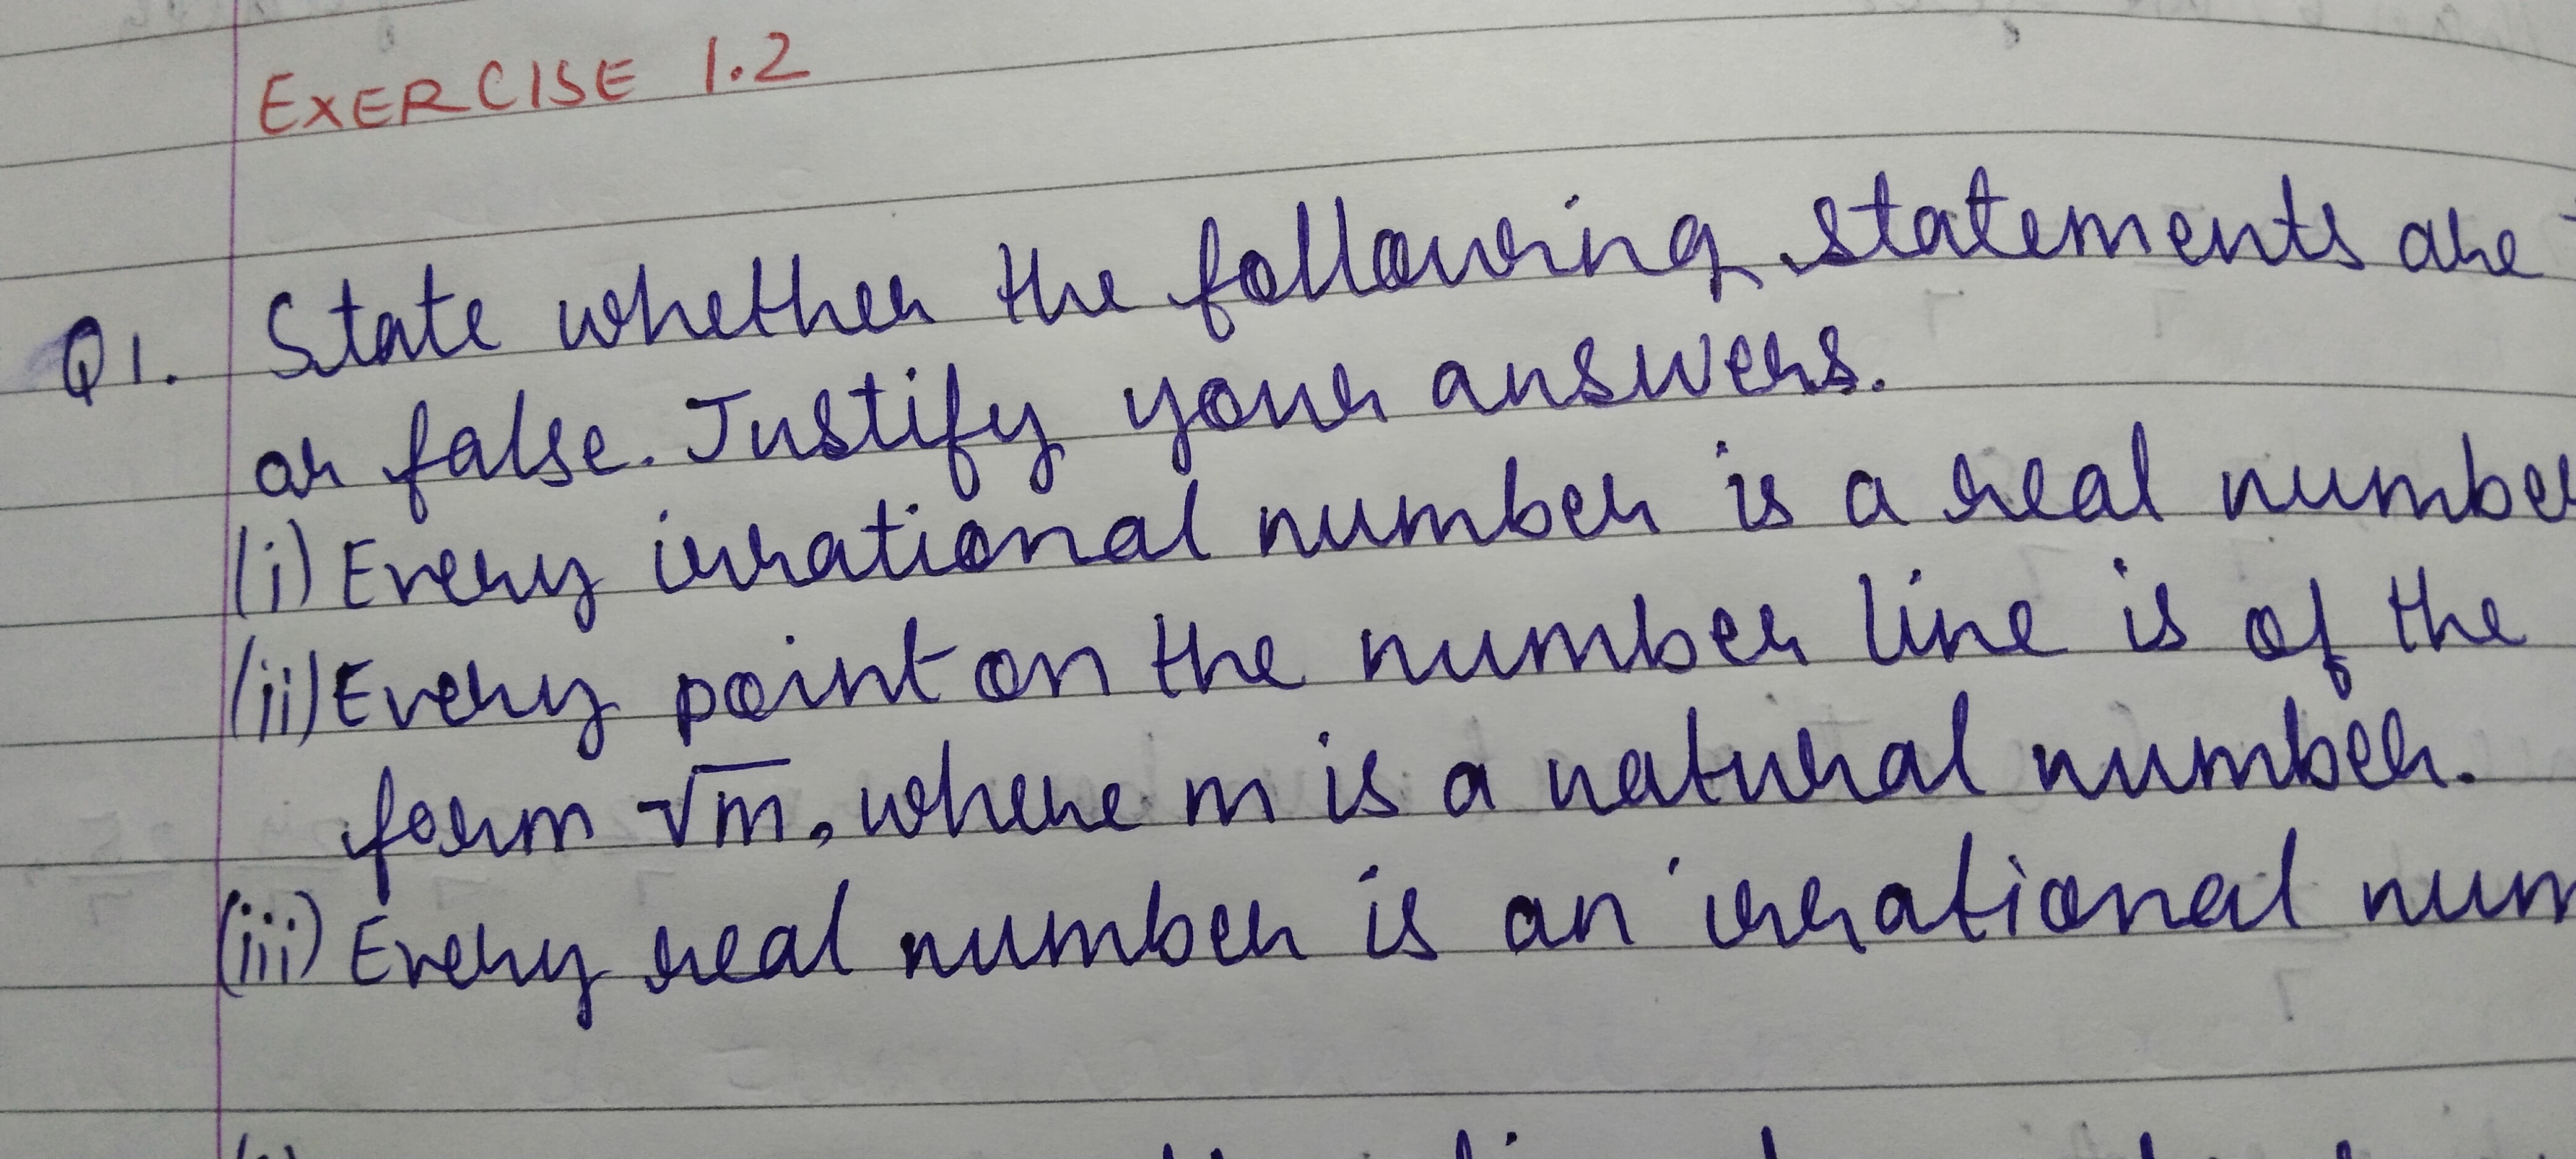 EXERCISE 1.2
Q1. State whether the following statements are
or false. Justify your answers.
(i) Every irrational number is a real number
(ii) Every point on the number line is of the
form √m, where m is a natural number.
(iii) Every real number is an irrational num